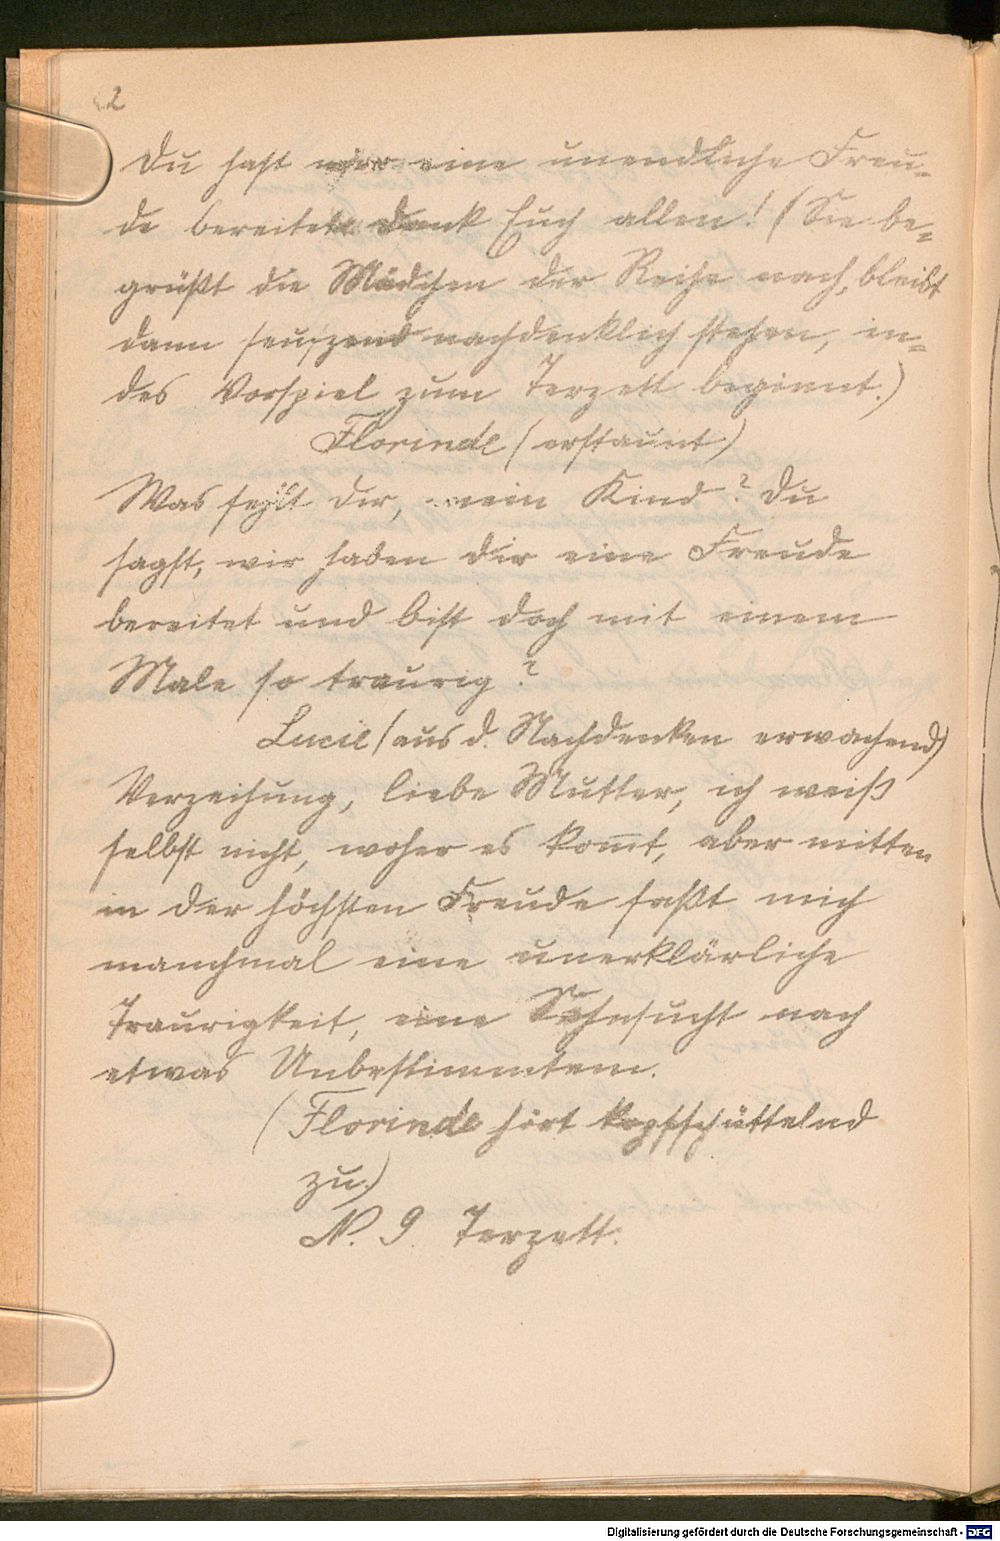 2
Du hast mir eine unendliche Freu-
de bereitet dank Euch allen! (Sie be-
grüßt die Mädchen der Reihe nach, bleibt
dann seufzend nachdenklich stehen, in-
des Vorspiel zum Terzett beginnt.)
Florinde (erstaunt)
Was fehlt dir, mein Kind? Du
sagst, wir haben dir eine Freude
bereitet und bist doch mit einem
Male so traurig?
Lucie (aus d. Nachdenken erwachend)
Verzeihung, liebe Mutter, ich weiß
selbst nicht, woher es kom̅t, aber mitten
in der höchsten Freude faßt mich
manchmal eine unerklärliche
Traurigkeit, eine Sehnsucht nach
etwas Unbestimmtem.
(Florinde hört kopfschüttelnd
zu.)
N. 9. Terzett.
Digitalisierung gefördert durch die Deutsche Forschungsgemeinschaft - DFG